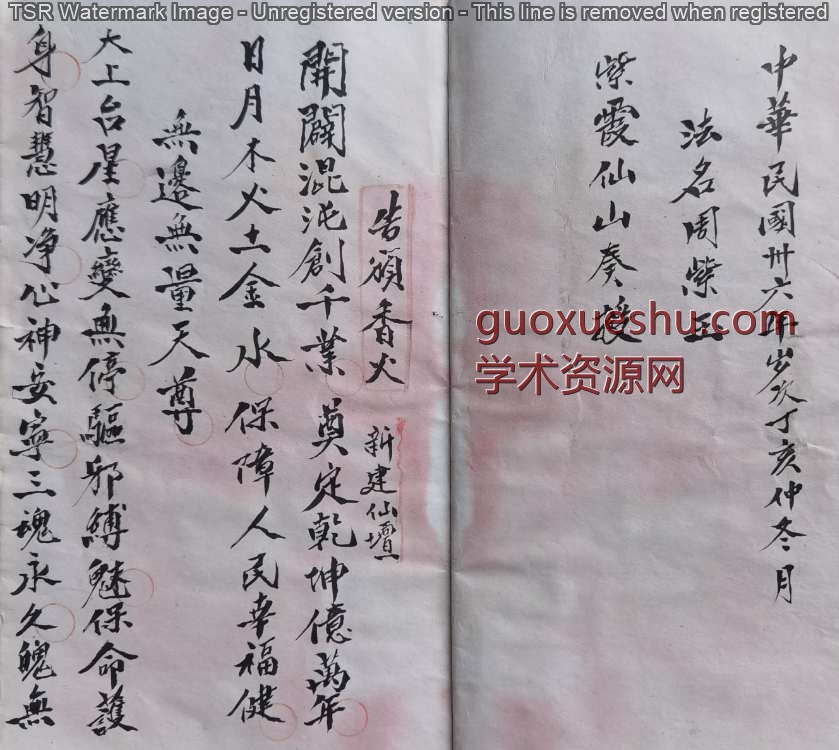 TSR Watermark Image - Unregistered version - This line is removed when registered
中華民國卅六年歲次丁亥仲冬月
法名周紫玉
紫霞仙山奏授
guoxueshu.com
学术资源网
告頒香火
新建仙壇
開闢混沌創千業 奠定乾坤億萬年
日月木火土金水 保障人民幸福健
無邊無量天尊
大上台星應變無停驅邪縛魅保命護
身智慧明净心神安寧三魂永久魄無